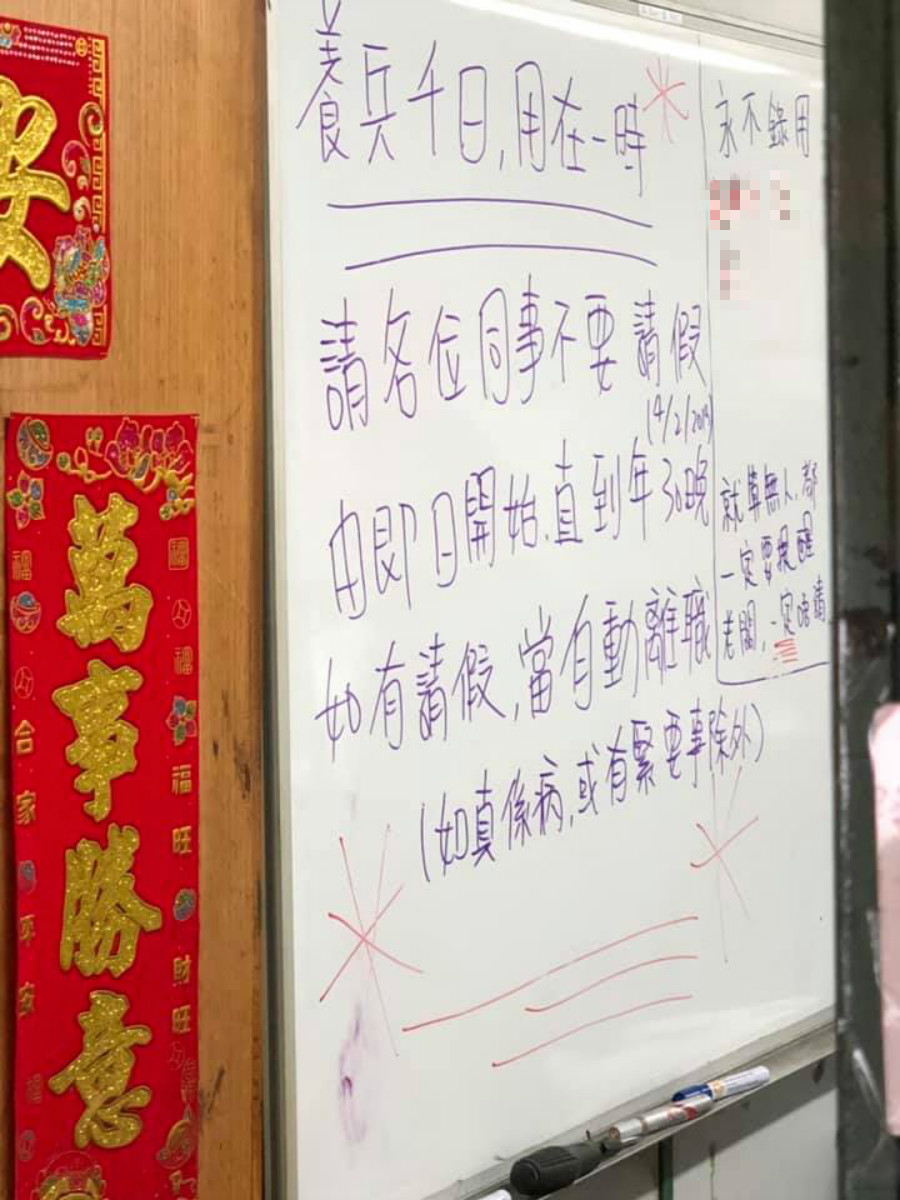 養兵千日,用在一時
請各位同事不要請假
(4/2/2019)
由即日開始.直到年30晚
如有請假,當自動離職
(如真係病,或有緊要事除外)
永不錄用
就算無人,都
一定要提醒
老闆,一定唔請
安
萬事勝意
合家平安
福旺財旺